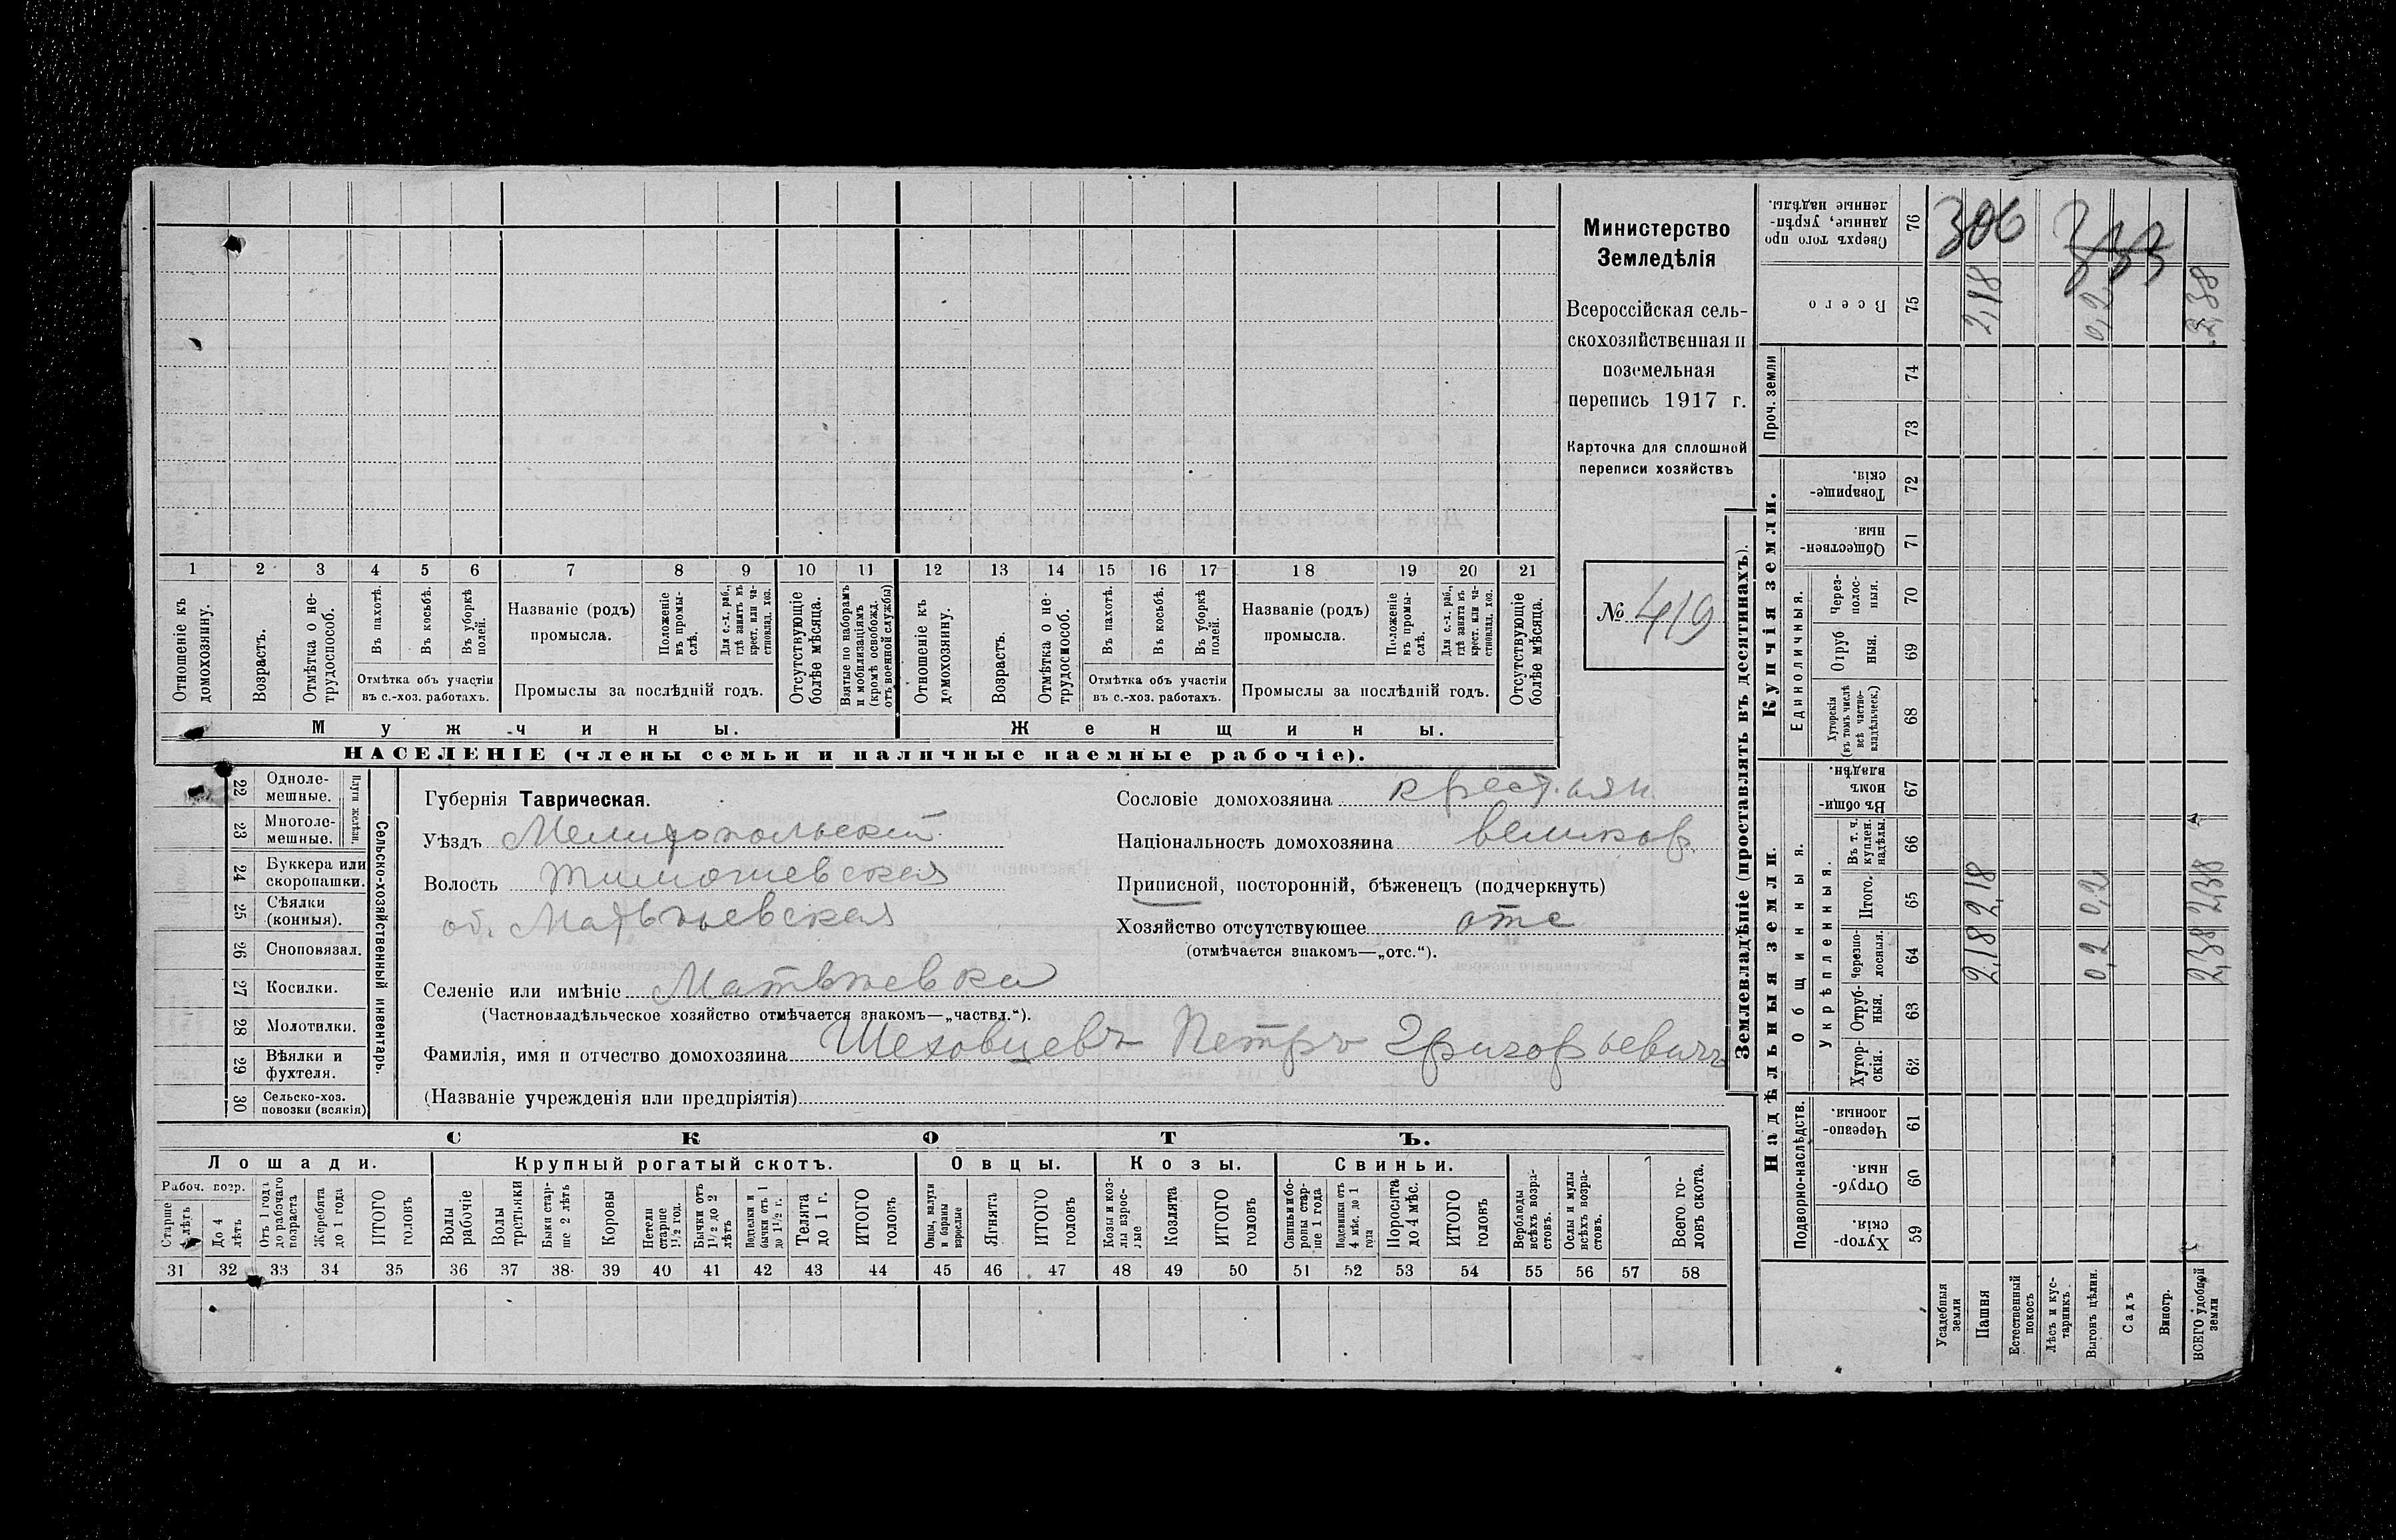 Министерство
Земледѣлія
Всероссійская сель-
скохозяйственная и
поземельная
перепись 1917 г.
Карточка для сплошной
переписи хозяйствъ
№ 419
1 2 3 4 5 6 7 8 9 10 11 12 13 14 15 16 17 18 19 20 21
Отношеніе къ домохозяину.
Возрастъ.
Отмѣтка о не-трудоспособ.
Въ пахотѣ.
Въ косьбѣ.
Въ уборкѣ полей.
Отмѣтка объ участіи
въ с.-хоз. работахъ.
Названіе (родъ)
промысла.
Положеніе въ промы-слѣ.
Для с.-х. раб., гдѣ занятъ въ крест. или ча-стновлад. хоз.
Промыслы за послѣдній годъ.
Отсутствующіе болѣе мѣсяца.
Взятые по наборамъ и мобилизаціямъ (кромѣ освобожд. отъ военной службы)
Отношеніе къ домохозяину.
Возрастъ.
Отмѣтка о не-трудоспособ.
Въ пахотѣ.
Въ косьбѣ.
Въ уборкѣ полей.
Отмѣтка объ участіи
въ с.-хоз. работахъ.
Названіе (родъ)
промысла.
Положеніе въ промы-слѣ.
Для с.-х. раб., гдѣ занята въ крест. или ча-стновлад. хоз.
Промыслы за послѣдній годъ.
Отсутствующіе болѣе мѣсяца.
Мужчины.
Женщины.
НАСЕЛЕНІЕ (члены семьи и наличные наемные рабочіе).
22 Одноле-мешные.
23 Многоле-мешные.
Плуги желѣзн.
24 Буккера или скоропашки.
25 Сѣялки (конныя).
26 Сноповязал.
27 Косилки.
28 Молотилки.
29 Вѣялки и фухтеля.
30 Сельско-хоз. повозки (всякія)
Сельско-хозяйственный инвентарь.
Губернія Таврическая.
Уѣздъ Мелитопольскій
Волость Тимошевская
об. Матвѣевская
Селеніе или имѣніе Матвѣевка
(Частновладѣльческое хозяйство отмѣчается знакомъ—„частвл.“).
Фамилія, имя и отчество домохозяина Шеховцевъ Петръ Григорьевичъ
(Названіе учрежденія или предпріятія)
Сословіе домохозяина крестьян
Національность домохозяина великор.
Приписной, посторонній, бѣженецъ (подчеркнуть)
Хозяйство отсутствующее отс
(отмѣчается знакомъ—„отс.“).
СКОТЪ.
Лошади.
Крупный рогатый скотъ.
Овцы.
Козы.
Свиньи.
Рабоч. возр.
Старше 4 лѣтъ
До 4 лѣтъ
Отъ 1 года до рабочаго возраста
Жеребята до 1 года
ИТОГО головъ
Волы рабочіе
Волы третьяки
Быки стар-ше 2 лѣтъ
Коровы
Нетели старше 1½ год.
Бычки отъ 1½ до 2 лѣтъ
Подтелки и бычки отъ 1 до 1½ г.
Телята до 1 г.
ИТОГО головъ
Овцы, валухи и бараны взрослые
Ягнята
ИТОГО головъ
Козы и коз-лы взрос-лые
Козлята
ИТОГО головъ
Свиньи и бо-ровы стар-ше 1 года
Подсвинки отъ 4 мѣс. до 1 года
Поросята до 4 мѣс.
ИТОГО головъ
Верблюды всѣхъ возра-стовъ.
Ослы и мулы всѣхъ возра-стовъ.
Всего го-ловъ скота.
31 32 33 34 35 36 37 38 39 40 41 42 43 44 45 46 47 48 49 50 51 52 53 54 55 56 57 58
Землевладѣніе (проставлять въ десятинахъ).
Надѣльныя земли.
Купчія земли.
Проч. земли
Подворно-наслѣдств.
Общинныя.
Укрѣпленныя.
Единоличныя.
Хутор-скія. 59
Отруб-ныя. 60
Черезпо-лосныя. 61
Хутор-скія. 62
Отруб-ныя. 63
Черезпо-лосныя. 64
Итого. 65
Въ т. ч. куплен. надѣлы. 66
Въ общин-номъ владѣн. 67
Хуторскія (въ томъ числѣ всѣ частно-владѣльческ.) 68
Отруб ныя. 69
Через-полос-ныя. 70
Обществен-ныя. 71
Товарище-скія. 72
73
74
Всего 75
Сверхъ того про данные, укрѣп-ленные надѣлы. 76
Усадебныя земли
Пашня 2,18 2,18 2,18
Естественный покосъ
Лѣсъ и кус-тарникъ
Выгонъ цѣлин. 0,2 0,2 0,2
Садъ
Виногр.
ВСЕГО удобной земли 2,38 2,38 2,38
306